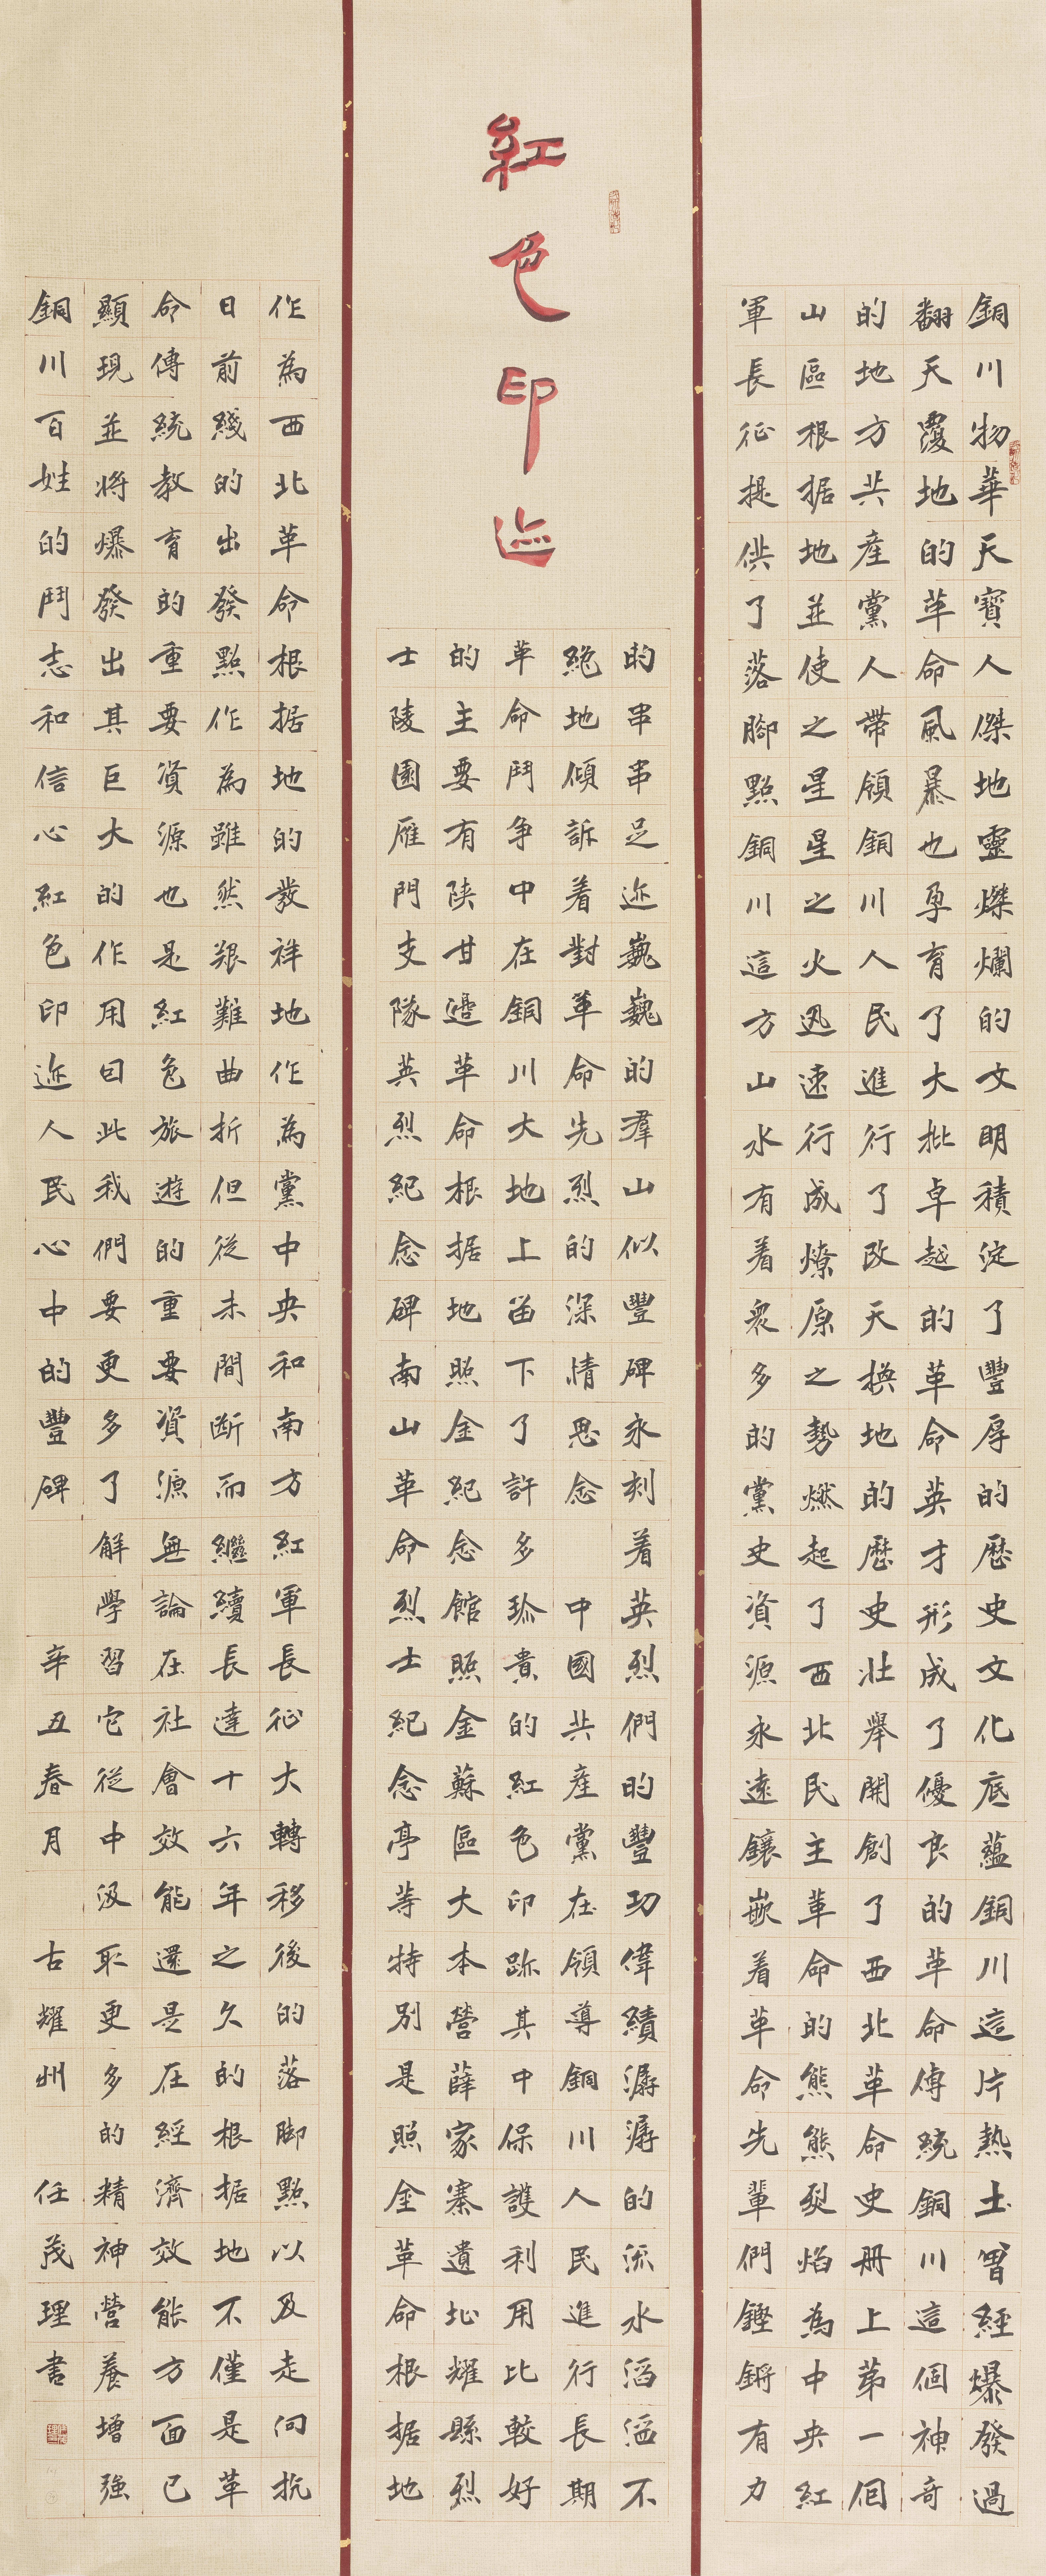 紅色印迹
銅川物華天寶人傑地靈燦爛的文明積淀了豐厚的歷史文化底蘊銅川這片熱土曾經爆發過
翻天覆地的革命風暴也孕育了大批卓越的革命英才形成了優良的革命傳統銅川這個神奇
的地方共產黨人帶領銅川人民進行了改天換地的歷史壯舉開創了西北革命史册上第一個
山區根据地並使之星星之火迅速行成燎原之勢燃起了西北民主革命的熊熊烈焰為中央紅
軍長征提供了落腳點銅川這方山水有着衆多的黨史資源永遠鑲嵌着革命先輩們鏗鏘有力
的串串足迹巍巍的羣山似豐碑永刻着英烈們的豐功偉績潺潺的流水滔滔不
絕地傾訴着對革命先烈的深情思念 中國共產黨在領導銅川人民進行長期
革命鬥争中在銅川大地上留下了許多珍貴的紅色印跡其中保護利用比較好
的主要有陝甘邊革命根据地照金紀念館照金蘇區大本營薛家寨遺址耀縣烈
士陵園雁門支隊英烈紀念碑南山革命烈士紀念亭等特別是照金革命根据地
作為西北革命根据地的發祥地作為黨中央和南方紅軍長征大轉移後的落脚點以及走向抗
日前綫的出發點作為雖然艱難曲折但從未間断而繼續長達十六年之久的根据地不僅是革
命傳統教育的重要資源也是紅色旅遊的重要資源無論在社會效能還是在經濟效能方面已
顯現並將爆發出其巨大的作用因此我們要更多了解學習它從中汲取更多的精神營養增強
銅川百姓的鬥志和信心紅色印迹人民心中的豐碑 辛丑春月 古耀州 任茂理書